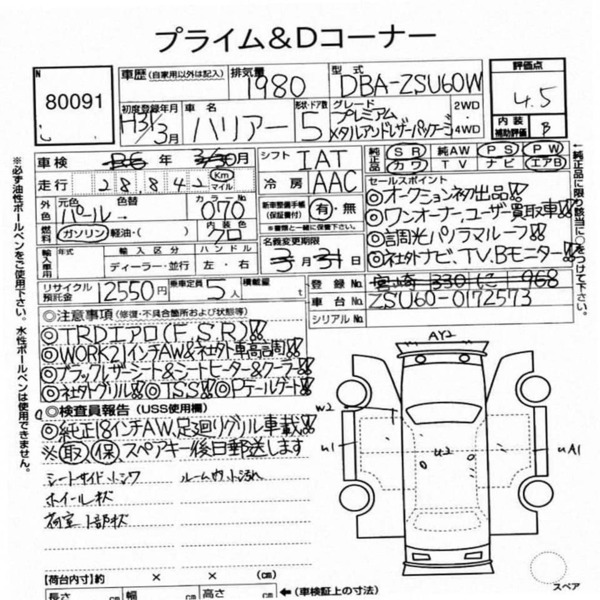 プライム&Dコーナー
N 80091
車歴 (自家用以外は記入) 排気量 1980 型式 DBA-ZSU60W
評価点 4.5
内装補助評価 B
初度登録年月 H31/3月 車名 ハリアー 形状・ドア数 5 グレード プレミアム メタルアンドレザーパッケージ 2WD・4WD
車検 R6年 3/30月 シフト IAT 純正品 SR 純AW PS PW
カワ TV ナビ エアB
走行 28842 Km マイル 冷房 AAC
セールスポイント
◎オークション初出品!!
外色 元色 パール 色替 カラーNo 070
新車整備手帳(保証書付) 有・無
※書類と一緒に保管下さい。
◎ワンオーナー、ユーザー買取車!!
燃料 ガソリン 軽油・( ) 内装色 クロ
◎調光パノラマルーフ!!
◎社外ナビ、TV、Bモニター!!
輸入車用 年式 輸入区分 ディーラー・並行 ハンドル 左・右
名義変更期限 3月31日
登録No.
リサイクル預託金 12550円 乗車定員 5人 積載量 t
車台No. ZSU60-0172573
シリアルNo.
◎注意事項 (修復・不具合箇所および状態等)
◎TRDエアロ(F、S、R)!!
◎WORK21インチAW&社外車高調!!
◎ブラックレザーシート&シートヒーター&クーラー!!
◎社外グリル!!◎TSS!!◎Pテールゲート!!
◎検査員報告 (USS使用欄)
◎純正18インチAW、足廻りグリル車載!!
※取保スペアキー後日郵送します
シートサイドシワ ルームカット汚れ
ホイール状
荷室下部状
AY2
W2
U1
U2
UA1
スペア
【荷台内寸】約 × × (cm)
長さ cm 幅 cm 高さ cm ←(車検証上の寸法)
※必ず油性ボールペンをご使用下さい。水性ボールペンは使用できません。
←純正品に限り該当に○をつけて下さい。